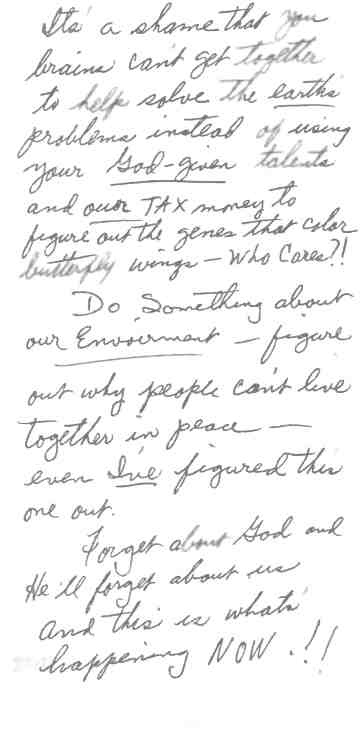 Its' a shame that you
brains can't get together
to help solve the earth's
problems instead of using
your God-given talents
and our TAX money to
figure out the genes that color
butterfly wings - Who Cares?!
Do Something about
our Enviorment - figure
out why people can't live
together in peace -
even I've figured this
one out.
Forget about God and
He'll forget about us
and this is whats'
happening NOW.!!